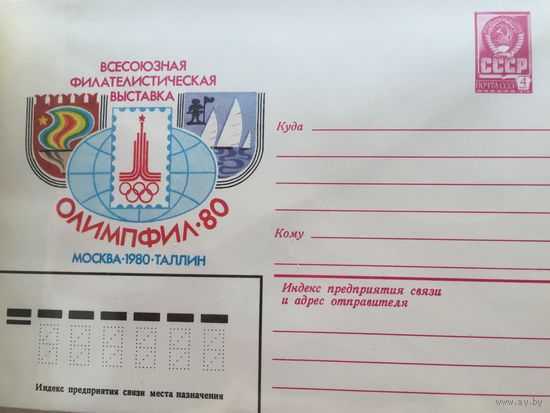 ВСЕСОЮЗНАЯ
ФИЛАТЕЛИСТИЧЕСКАЯ
ВЫСТАВКА
ОЛИМПФИЛ·80
МОСКВА·1980·ТАЛЛИН
СССР
ПОЧТА СССР 4
Куда
Кому
Индекс предприятия связи
и адрес отправителя
Индекс предприятия связи места назначения
www.ay.by